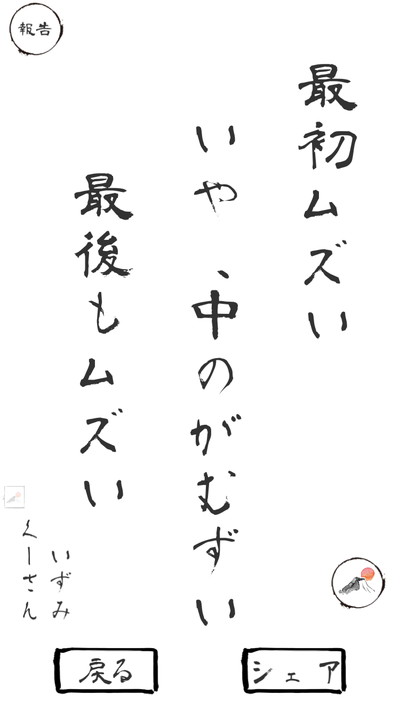 報告
最初ムズい
いや、中のがむずい
最後もムズい
いずみ
くーさん
戻る
シェア